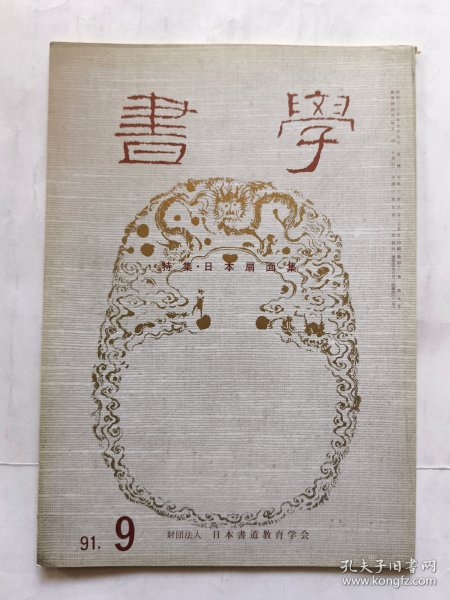 書學
特集・日本扇面集
91. 9
財団法人 日本書道教育学会
孔夫子旧书网
www.kongfz.com